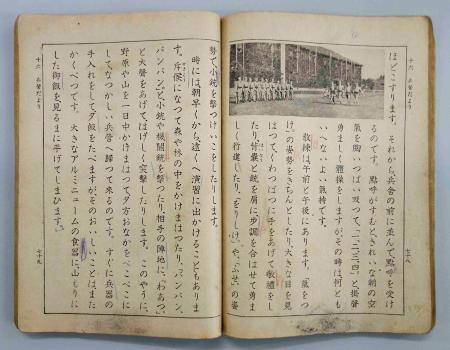 十六 兵營だより
七十八
ほどこすります。それから、兵舎の前に並んで點呼を受け
るのです。點呼がすむと、きれいな朝の空
氣を胸いつぱい吸つて、「一、二、三、四」と掛聲
勇ましく體操をしますが、その時は何とも
いへないよい氣持です。
教練は、午前と午後にあります。「氣をつ
け」の姿勢をきちんとしたり、大きな目を見
はつて、くわつぱつに手をあげて敬禮をし
たり、背嚢と銃を肩に、歩調を合はせて勇ま
しく行進したり、「をりしけ」や、「ふせ」の姿
勢で、小銃を撃つけいこをしたりします。
時には、朝早くから、遠くへ演習に出かけることもありま
す。斥候になつて森や林の中をかけまはつたり、「パンパン、
パンパン」と小銃や機關銃を撃つたり、相手の陣地に、「わあつ」
と大聲をあげて、はげしく突撃したりします。このやうに、
野原や山を一日中かけまはつて、夕方おなかをぺこぺこに
して、なつかしい兵營へ歸つて來るのです。すぐに兵器の
手入れをして夕飯をたべますが、そのおいしいことはまた
かくべつです。大きなアルミニュームの食器に、山もりに
した御飯を、見るまに平げてしまひます。
十六 兵營だより
七十九